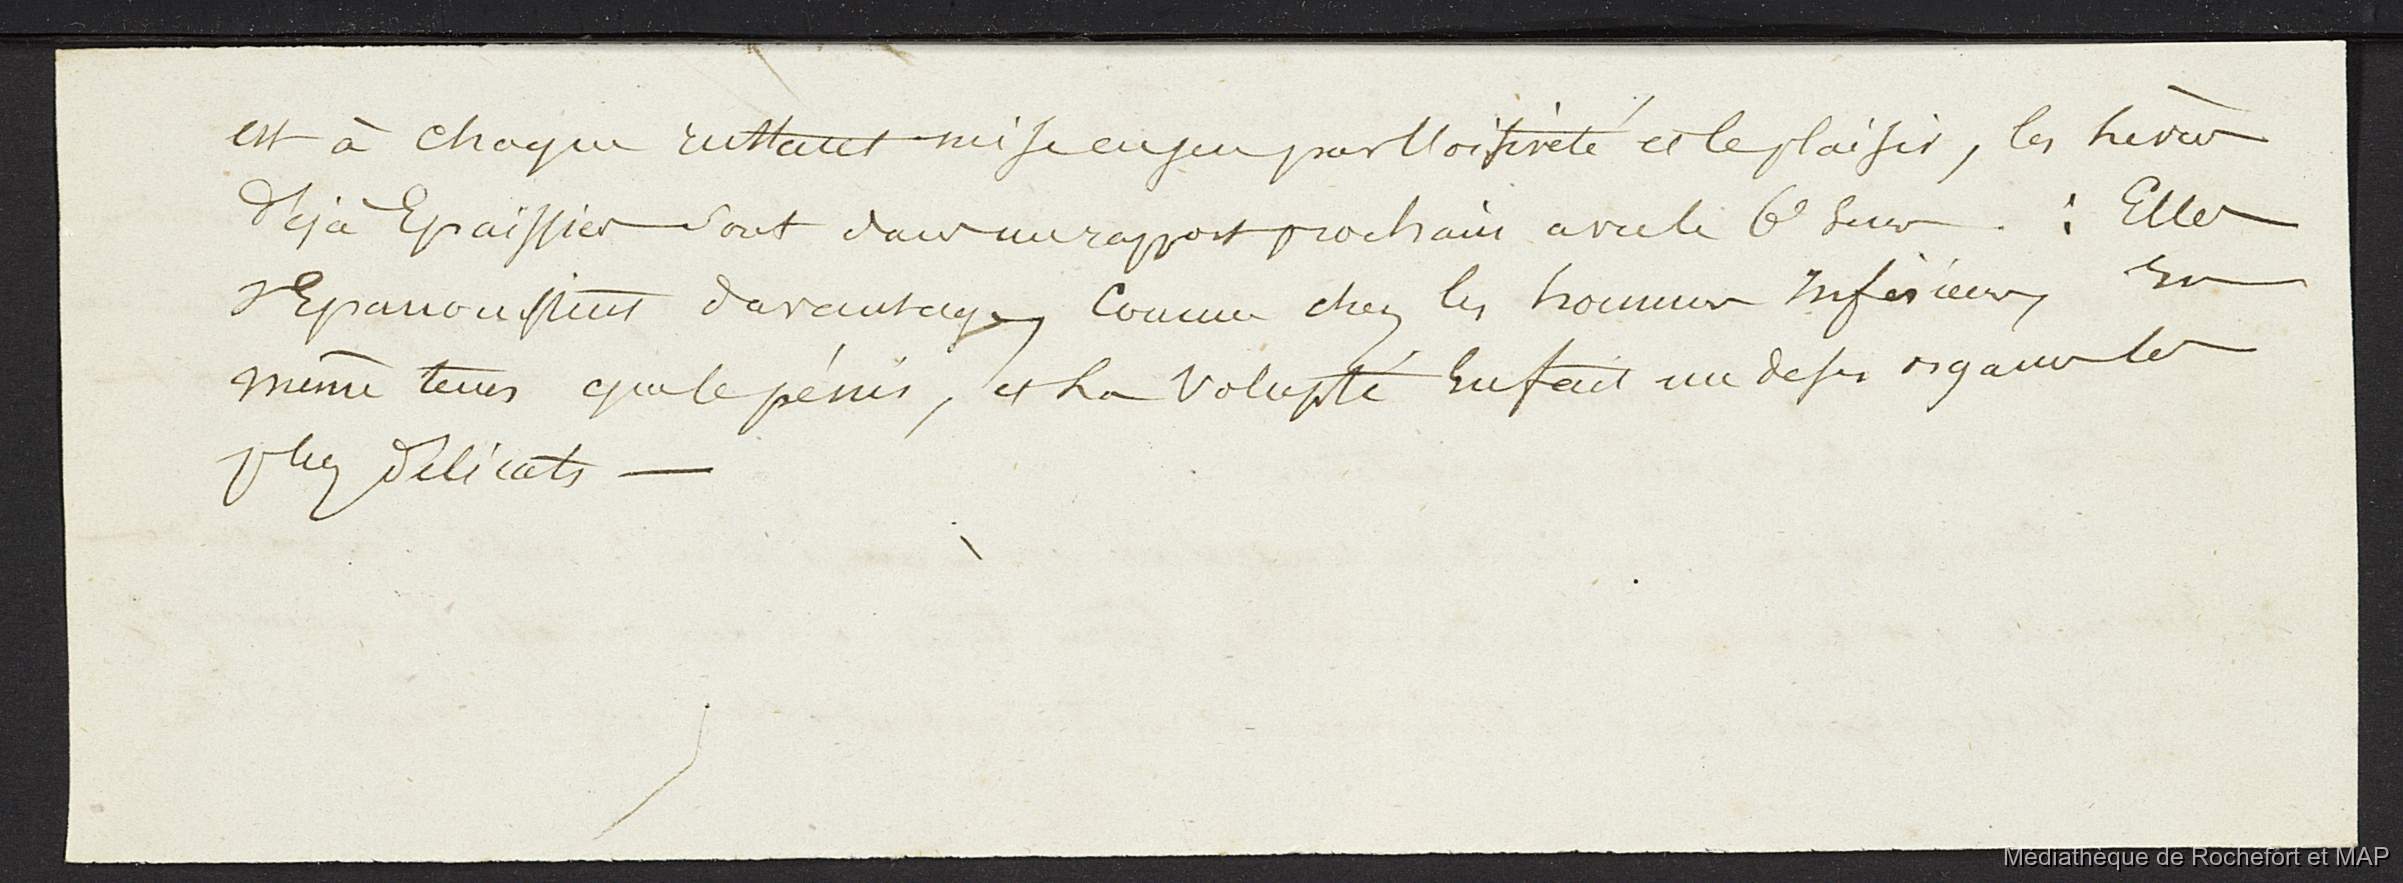 est à chaque instant mise en jeu par l'oisiveté et le plaisir, les lèvres
déjà Epaissies sont dans un rapport prochain avec le 6e sens . : Elles
s'Epanouissent davantage, Comme chez les hommes Inférieurs, En
même tems que le pénis, et La Volupté En fait un de ses organes les
plus délicats —
Médiathèque de Rochefort et MAP